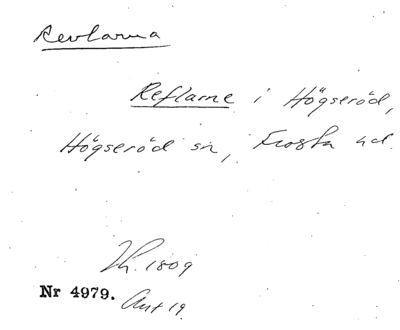 Revlarna
Reflarne i Högseröd,
Högseröd sn, Frosta hd
Th. 1809
Nr 4979. Ant 19